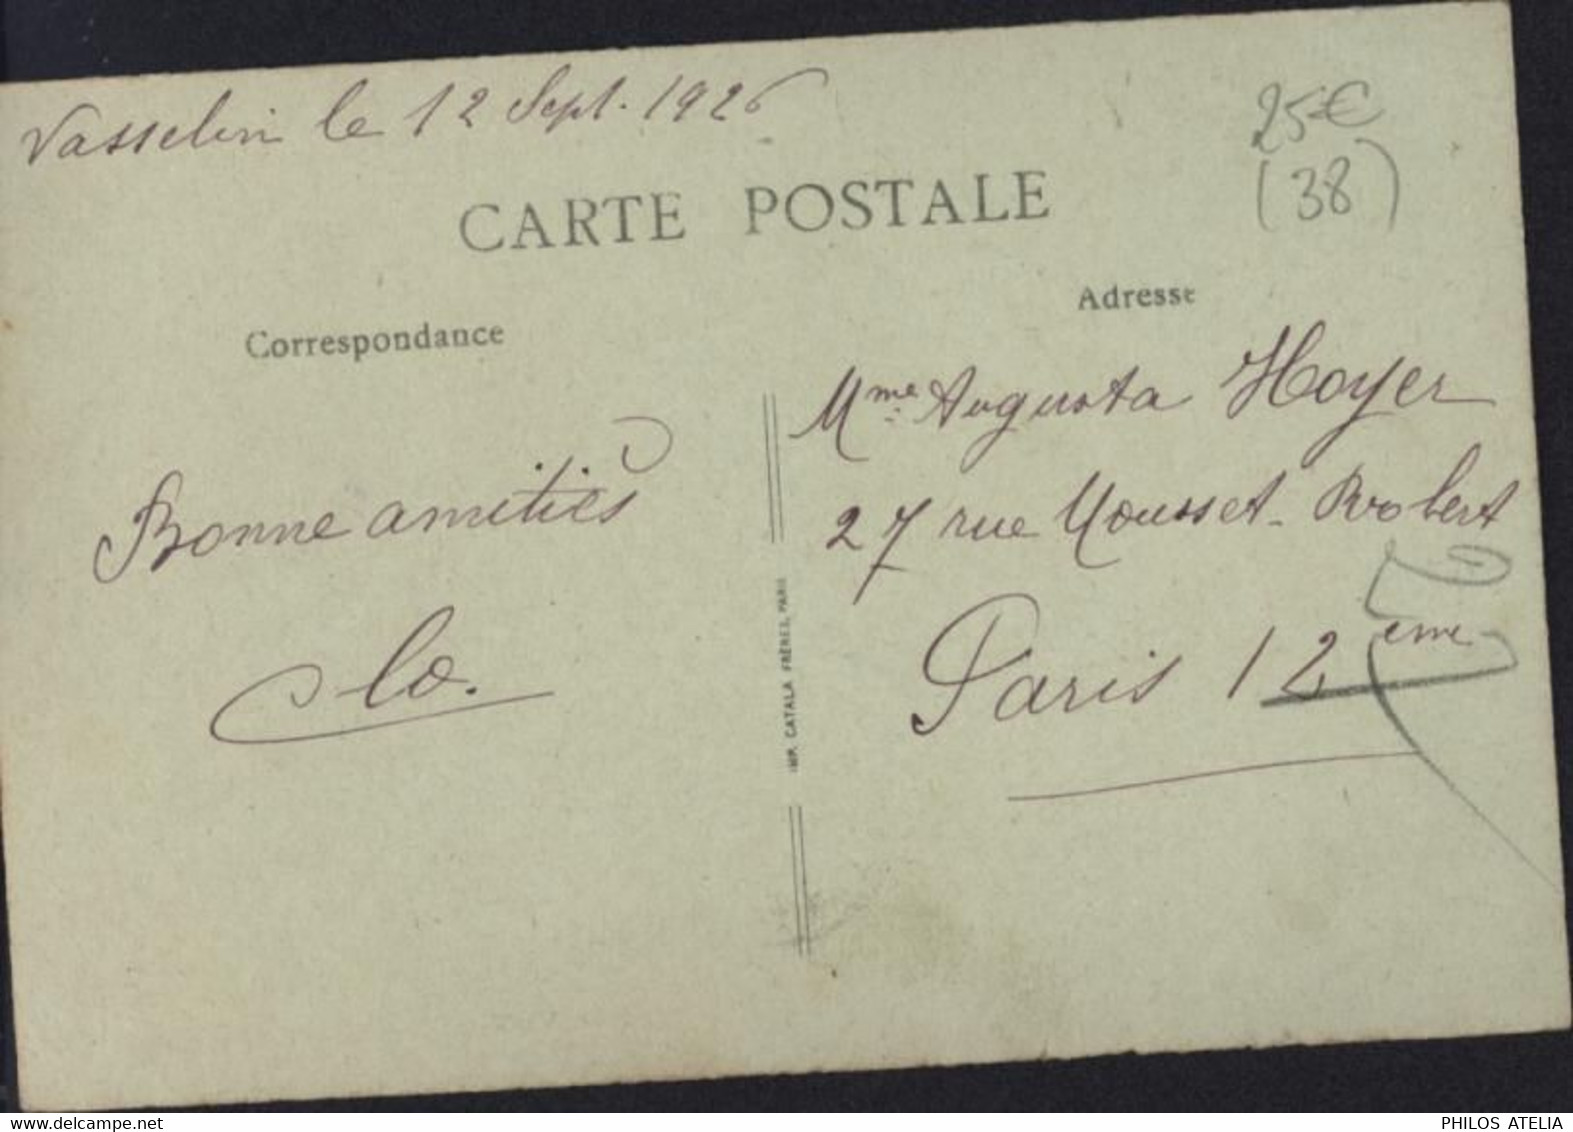 Vasselin le 12 Sept. 1926
25€
(38)
CARTE POSTALE
Correspondance
Adresse
Mme Augusta Hoyer
27 rue Mousset-Robert
Paris 12eme
Bonne amitiés
Clo.
IMP. CATALA FRÈRES, PARIS
PHILOS ATELIA